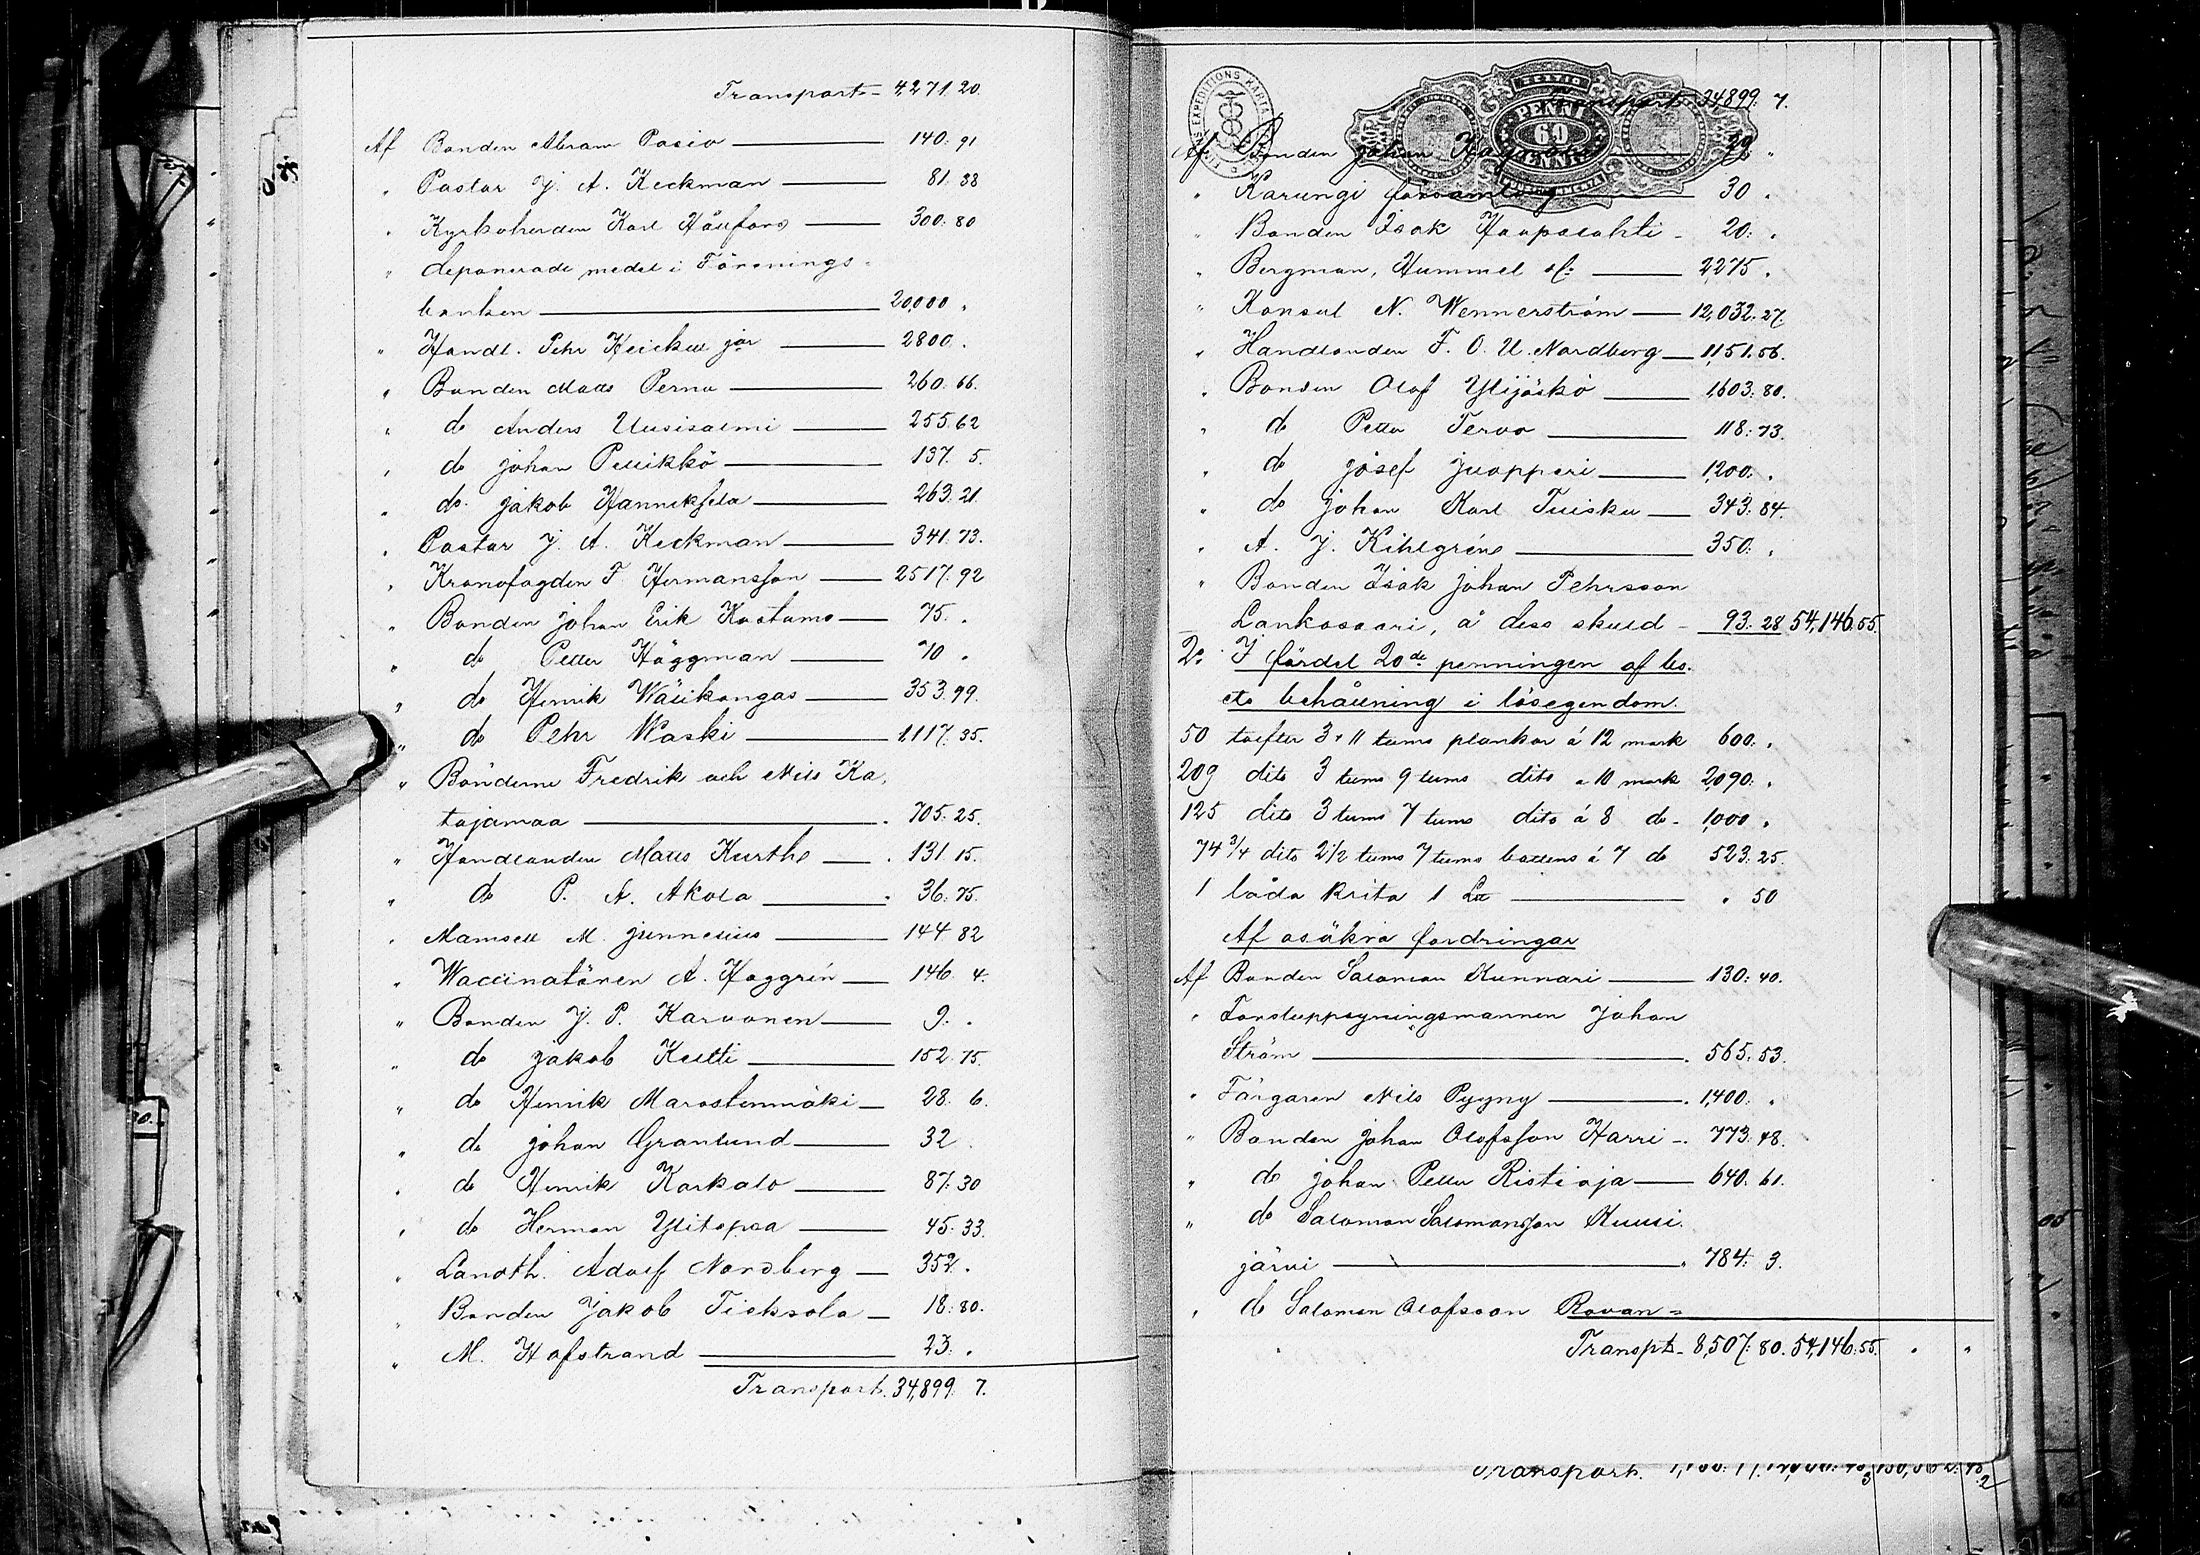 Transport 4,271. 20.
Af Bonden Abram Pasio 140. 91
" Pastor J. A. Keckman 81. 38
" Kyrkoherden Karl Höckfors 300. 80
" deponerade medel i Förenings-
banken 20,000 "
" Handl. Pehr Keicku jor 2800. "
" Bonden Matts Perna 260. 66.
" do Anders Uusisalmi 255. 62
" do Johan Peuikkö 137. 5.
" do Jakob Hanniksela 263. 21
" Pastor J. A. Keckman 341. 73.
" Kronofogden F. Hermansson 2517. 92
" Bonden Johan Erik Kostamo 75. "
" do Petter Häggman 70 "
" do Henrik Wälikangas 353. 99.
" do Pehr Waski 1117. 35.
" Bönderne Fredrik och Nils Ka-
tajamaa 705. 25.
" Handlanden Matts Kurth 131. 15.
" do P. A. Akola 36. 75.
" Mamsell M. Junnelius 144 82
" Waccinatören A. Haggrén 146. 4.
" Bonden J. P. Karvonen 9. "
" do Jakob Kutti 152. 75.
" do Henrik Marostenmäki 28. 6.
" do Johan Granlund 32
" do Henrik Karkalo 87. 30
" do Herman Ylitapaa 45. 33.
" Landth. Adolf Nordberg 352. "
" Bonden Jakob Tieksola 18. 80.
" M. Hofstrand 23. "
Transport. 34,899. 7.
PENNI 60 PENNIÄ
Transport 34,899. 7.
Af Bonden Johan 29 "
" Karungi församling 30 "
" Bonden Isak Haapalahti 20: "
" Bergman, Hummel &c: 2,275 "
" Konsul N. Wennerström 12,032. 27.
" Handlanden F. O. U. Nordberg 1,151. 56.
" Bonden Olof Ylijääskö 1,603: 80.
" do Petter Tervo 118: 73.
" do Josef Juopperi 1,200: "
" do Johan Karl Tuisku 343: 84.
" A. J. Kihlgréns 350: "
" Bonden Isak Johan Pehrsson
Lankosaari, å dess skuld 93: 28 54,146. 55.
2o I fördel 20de penningen af bo-
ets behållning i lösegendom.
50 tolfter 3 * 11 tums plankor á 12 mark 600: "
209 dito 3 tums 9 tums dito a 10 mark 2,090: "
125 dito 3 tums 7 tums dito á 8 do 1,000 "
74 3/4 dito 2 1/2 tums 7 tums battens á 7 do 523: 25.
1 låda krita 1 L℔ " 50
Af osäkra fordringar
Af Bonden Salomon Kunnari 130: 40.
" Forstuppsyningsmannen Johan
Ström 565. 53.
" Färgaren Nils Pyyny 1,400: "
" Bonden Johan Olofsson Harri 773. 48.
" do Johan Petter Ristioja 640. 61.
" do Salomon Salomonsson Kuusi-
järvi 784: 3.
" do Salomon Olofsson Rovan=
Transpt. 8,507: 80. 54,146: 55. " "
Transport.